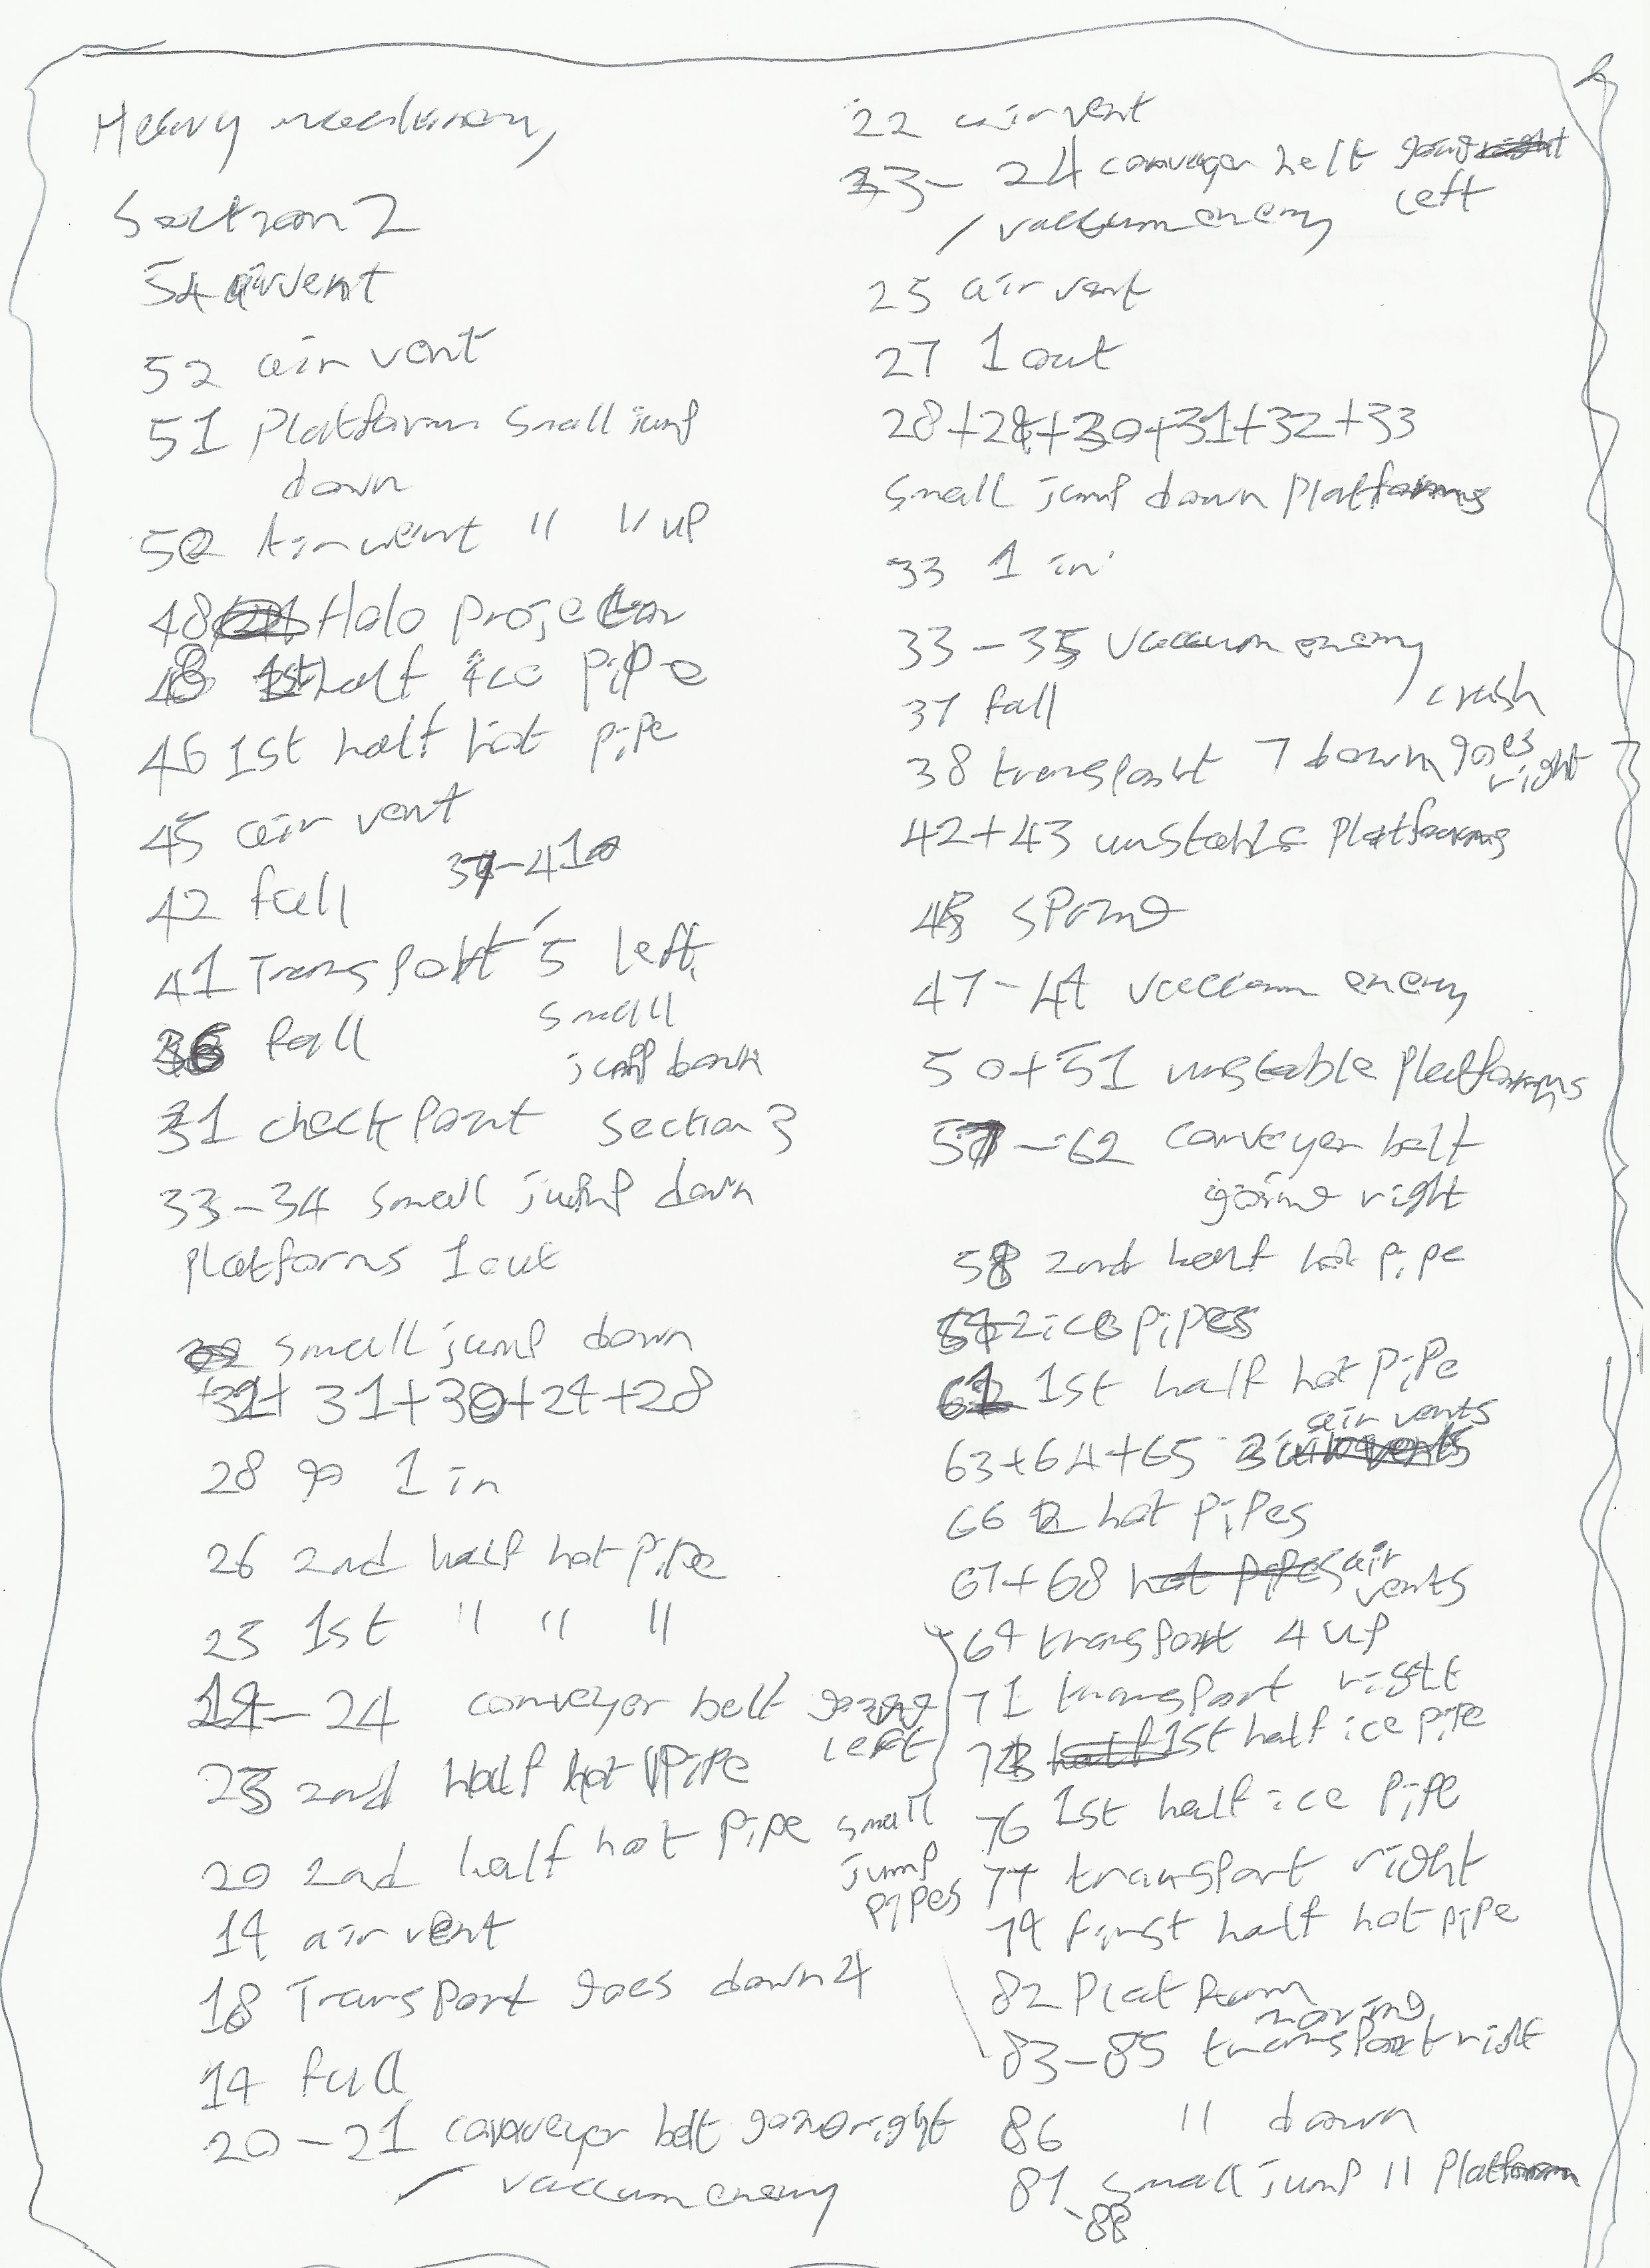 Heavy machinery
Section 2
54 air vent
52 air vent
51 Platform small jump
down
50 Air vent " " up
48 Halo projector
48 1st half ice pipe
46 1st half hot pipe
45 air vent
42 fall 37-41
41 Transport 5 left
small
jump back
36 fall
31 check point section 3
33-34 small jump down
platforms 1 out
small jump down
31+30+29+28
28 go 1 in
26 2nd half hot pipe
25 1st " " "
19-24 conveyer belt going
left
23 2nd half hot pipe
20 2nd half hot pipe small
jump
pipes
19 air vent
18 Transport goes down 4
19 fall
20-21 conveyer belt going right
/ vaccum enemy
22 air vent
23-24 conveyer belt going
left
/ vaccum enemy
25 air vent
27 1 out
28+29+30+31+32+33
small jump down platforms
33 1 in
33-35 vaccum enemy
crush
37 fall
38 transport 7 down goes
right
42+43 unstable platforms
48 spring
47-49 vaccum enemy
50+51 unstable platforms
57-62 conveyer belt
going right
58 2nd half hot pipe
2 ice pipes
61 1st half hot pipe
63+64+65 air vents
66 2 hot pipes
67+68 air
vents
69 transport 4 up
71 transport right
73 1st half ice pipe
76 1st half ice pipe
77 transport right
79 first half hot pipe
82 platform
moving
83-85 transport right
86 " down
87 small jump " platform
-88